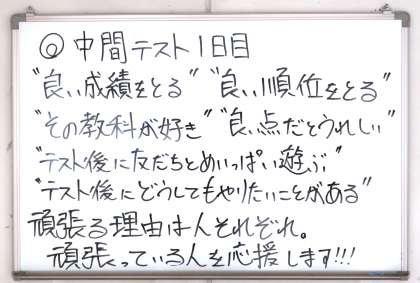 ◎中間テスト1日目
"良い成績をとる" "良い順位をとる"
"その教科が好き" "良い点だとうれしい"
"テスト後に友だちとめいっぱい遊ぶ"
"テスト後にどうしてもやりたいことがある"
頑張る理由は人それぞれ。
頑張っている人を応援します!!!